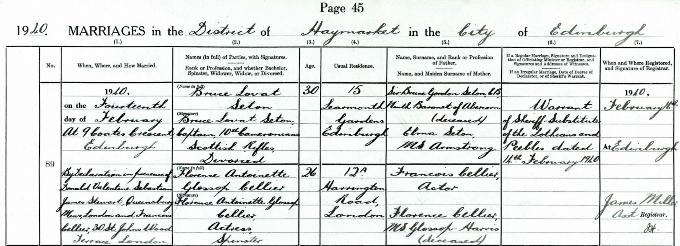 Page 45
1940. MARRIAGES in the District of Haymarket in the City of Edinburgh
(1.) (2.) (3.) (4.) (5.) (6.) (7.)
No.
When, Where, and How Married.
Names (in full) of Parties, with Signatures.
Rank or Profession, and whether Bachelor, Spinster, Widower, Widow, or Divorced.
Age.
Usual Residence.
Name, Surname, and Rank or Profession of Father.
Name, and Maiden Surname of Mother.
If a Regular Marriage, Signature and Designation of Officiating Minister or Registrar, and Signatures and Addresses of Witnesses.
If an Irregular Marriage, Date of Decree of Declarator, or of Sheriff's Warrant.
When and Where Registered, and Signature of Registrar.
89
1940.
on the Fourteenth
day of February
At 9 Coates Crescent
Edinburgh
By Declaration in presence of
Donald Valentine Sebastian
James Stewart, Queensberry
Mews, London and Francois
Cellier, 30 St. Johns Wood
Terrace London
(Name in full)
Bruce Lovat
Seton
(Signature)
Bruce Lovat Seton,
Captain, 10th Cameronians
Scottish Rifles,
Divorced
(Name in full)
Florence Antoinette
Glossop Cellier
(Signature)
Florence Antoinette Glossop
Cellier,
Actress
Spinster
30
26
15
Learmonth
Gardens
Edinburgh
Harrington
Road,
London
Sir Bruce Gordon Seton, C.B
Ninth Baronet of Abercorn
(deceased)
Elma Seton,
M.S. Armstrong
Francois Cellier,
Actor
Florence Cellier,
M.S. Glossop Harris
(deceased)
Warrant
of Sheriff Substitute
of the Lothians and
Peebles dated
14th February 1940
1940.
February
At Edinburgh
James
Asst Registrar.